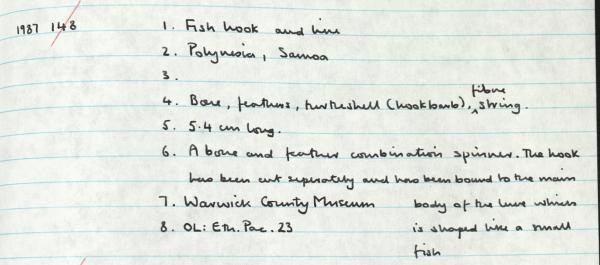 1987 148 1. Fish hook and line
2. Polynesia, Samoa
3.
4. Bone, feathers, turtleshell (hook barb), fibre string.
5. 5.4 cm long.
6. A bone and feather combination spinner. The hook
has been cut seperately and has been bound to the main
body of the lure which
is shaped like a small
fish
7. Warwick County Museum
8. OL: Eth. Pac. 23